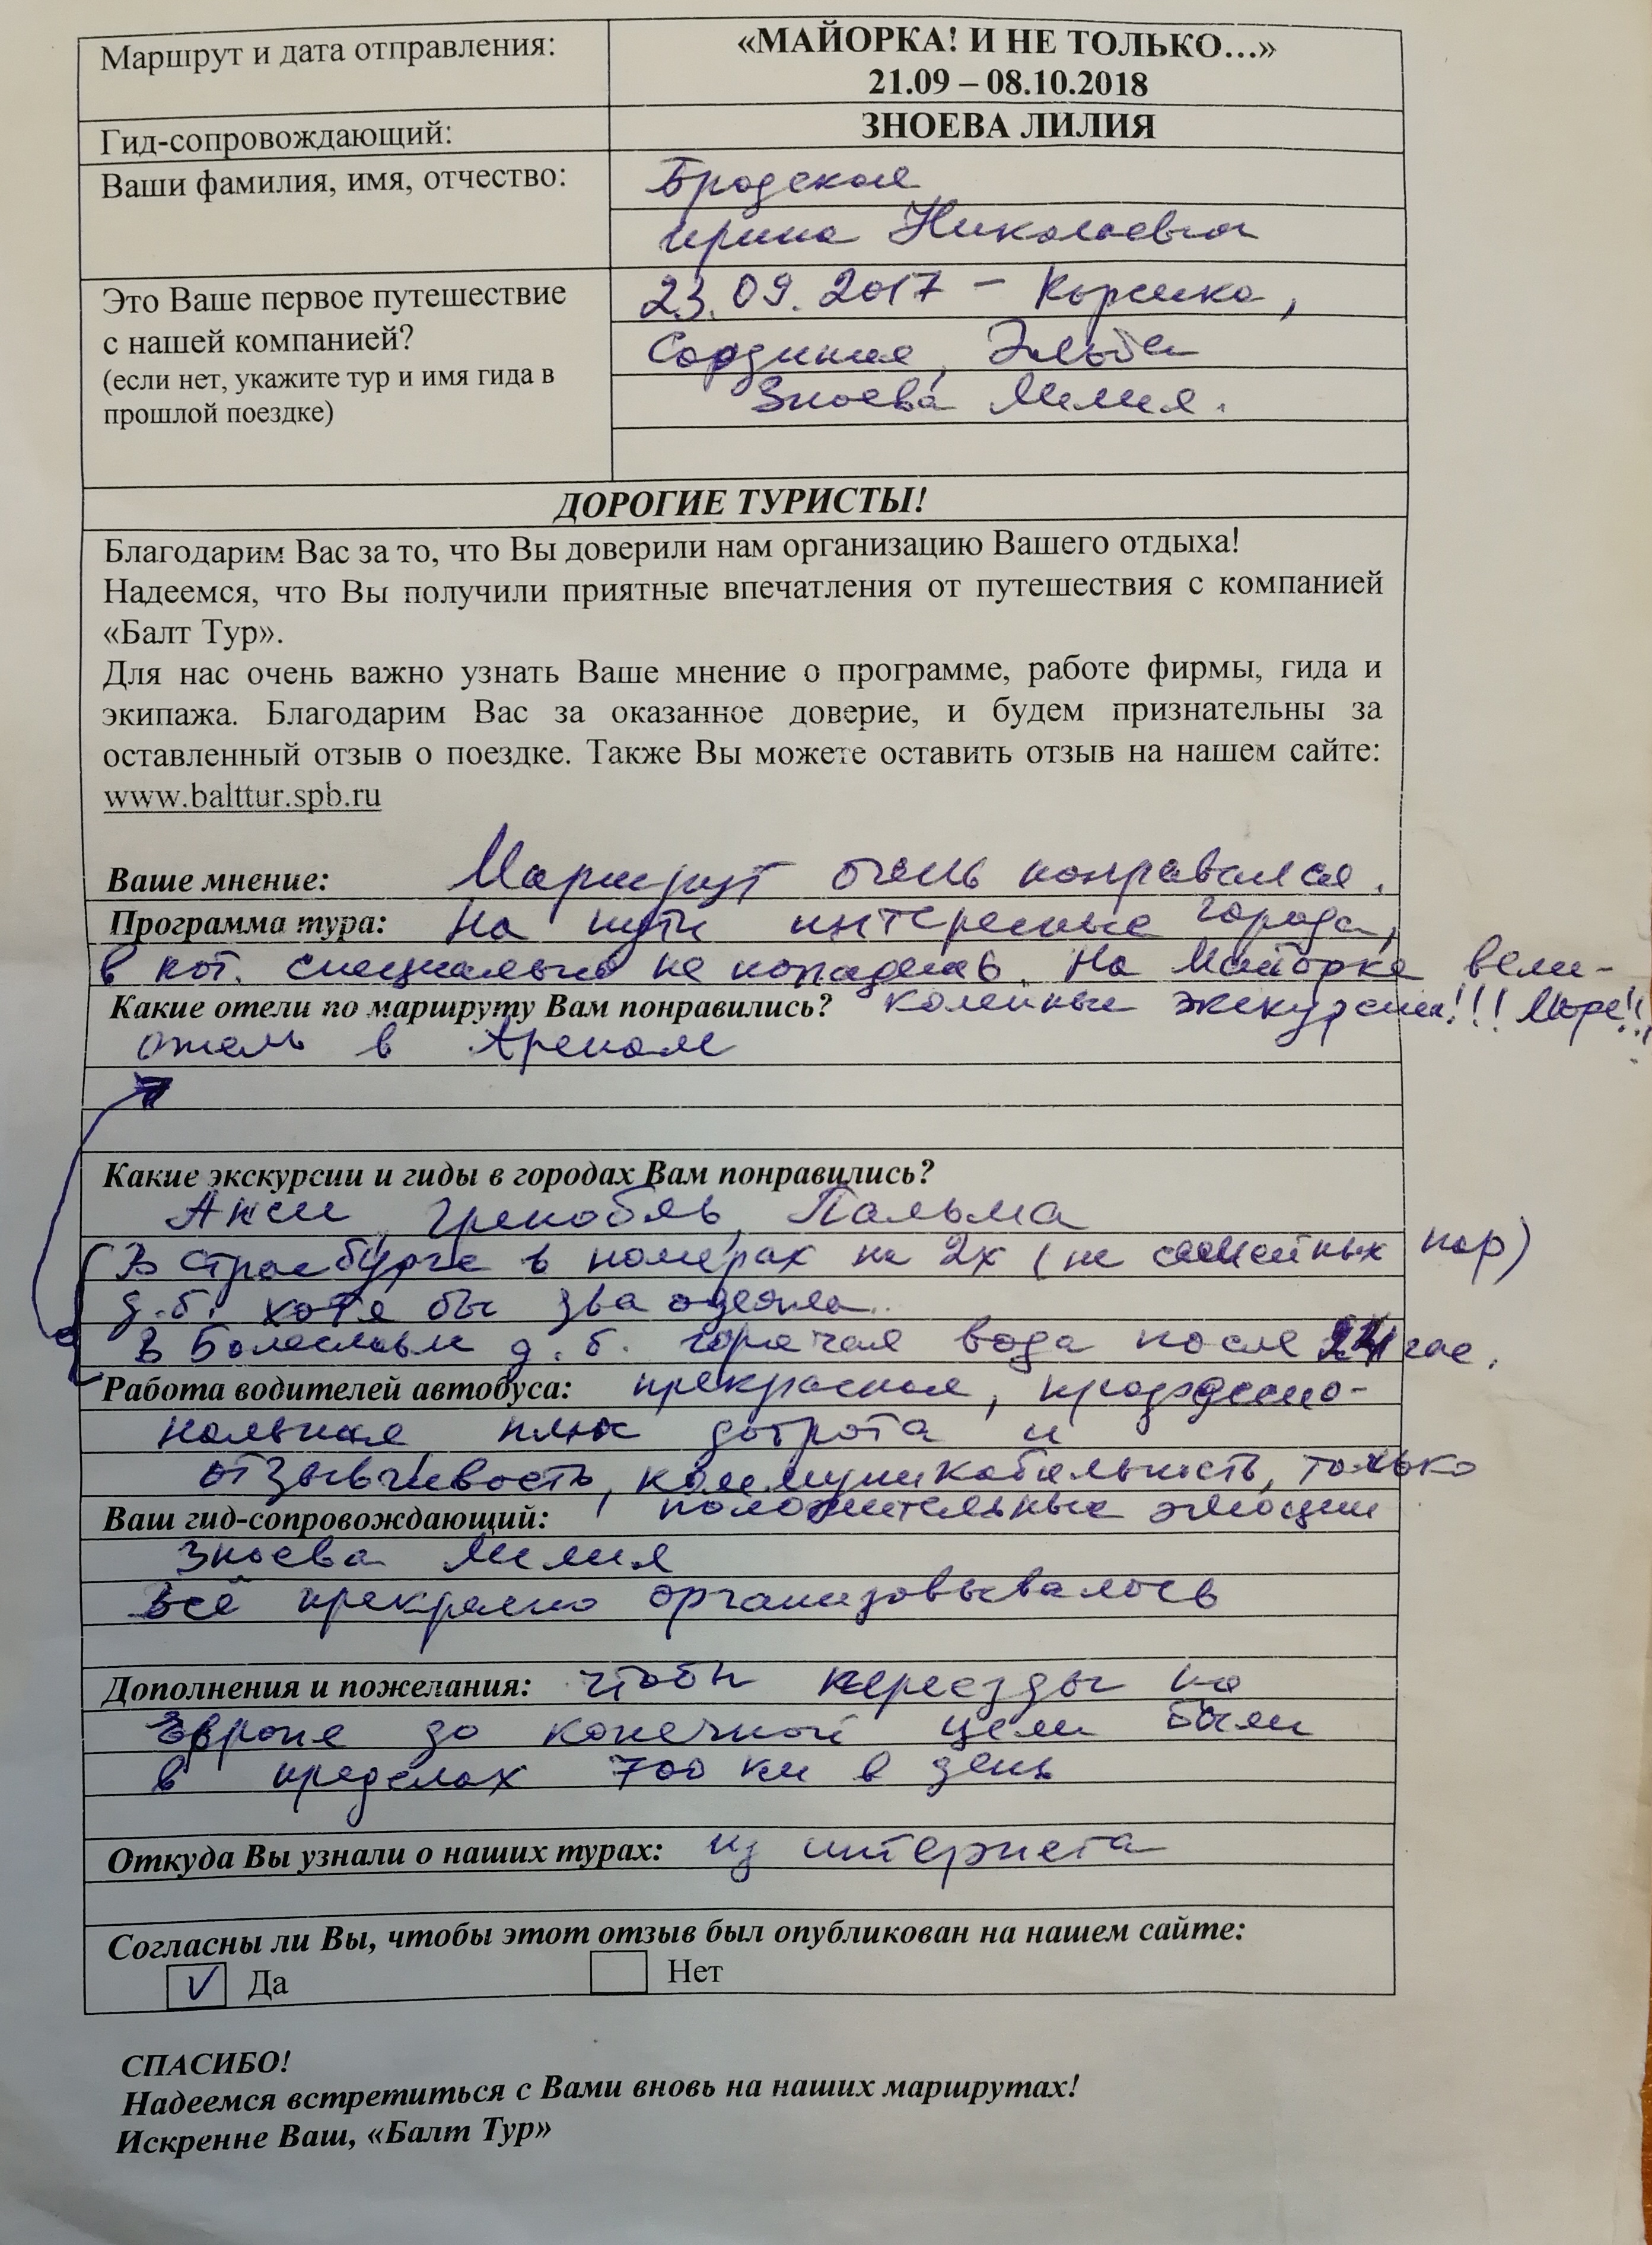 Маршрут и дата отправления:
«МАЙОРКА! И НЕ ТОЛЬКО…»
21.09 – 08.10.2018
Гид-сопровождающий:
ЗНОЕВА ЛИЛИЯ
Ваши фамилия, имя, отчество:
Бродская
Ирина Николаевна
Это Ваше первое путешествие
с нашей компанией?
(если нет, укажите тур и имя гида в
прошлой поездке)
23.09.2017 – Корсика,
Сардиния, Эльба
Зноева Лилия.
ДОРОГИЕ ТУРИСТЫ!
Благодарим Вас за то, что Вы доверили нам организацию Вашего отдыха!
Надеемся, что Вы получили приятные впечатления от путешествия с компанией
«Балт Тур».
Для нас очень важно узнать Ваше мнение о программе, работе фирмы, гида и
экипажа. Благодарим Вас за оказанное доверие, и будем признательны за
оставленный отзыв о поездке. Также Вы можете оставить отзыв на нашем сайте:
www.balttur.spb.ru
Ваше мнение: Маршрут очень понравился.
Программа тура: На пути интересные города,
в кот. специально не попадешь. На Майорке вели-
Какие отели по маршруту Вам понравились? колепные экскурсии!!! Море!!!
отель в Аренале
Какие экскурсии и гиды в городах Вам понравились?
Анси, Гренобль, Пальма
В Страсбурге в номерах на 2х (не семейных пар)
д.б. хотя бы два одеяла.
В Болеславце д.б. горячая вода после час.
Работа водителей автобуса: прекрасная, професно-
нальная плюс доброта и
отзывчивость, коммуникабельность, только
Ваш гид-сопровождающий: положительные эмоции
Зноева Лилия
Всё прекрасно организовывалось
Дополнения и пожелания: чтобы переезды по
Европе до конечной цели были
в пределах 700 км в день
Откуда Вы узнали о наших турах: из интернета
Согласны ли Вы, чтобы этот отзыв был опубликован на нашем сайте:
Да Нет
СПАСИБО!
Надеемся встретиться с Вами вновь на наших маршрутах!
Искренне Ваш, «Балт Тур»